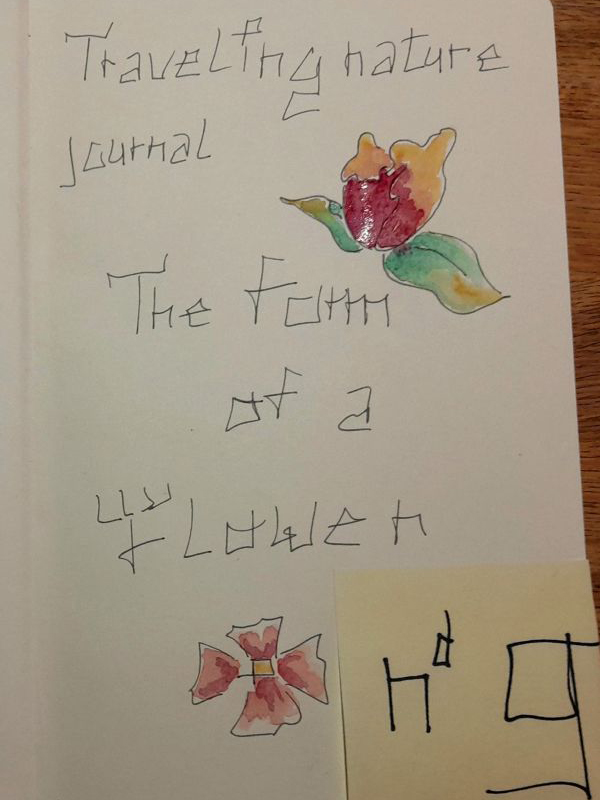 Traveling nature
journal
The Form
of a
Flower